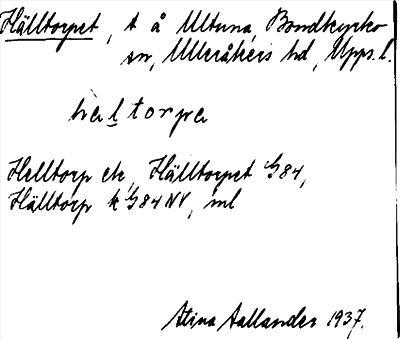 Hälltorpet, t å Ultuna, Bondkyrko
sn, Ulleråkers hd, Upps. l.
hältorpa
Helltorp ek, Hälltorpet G84,
Hälltorp k G84 NV, ml
Stina Aallander 1937.